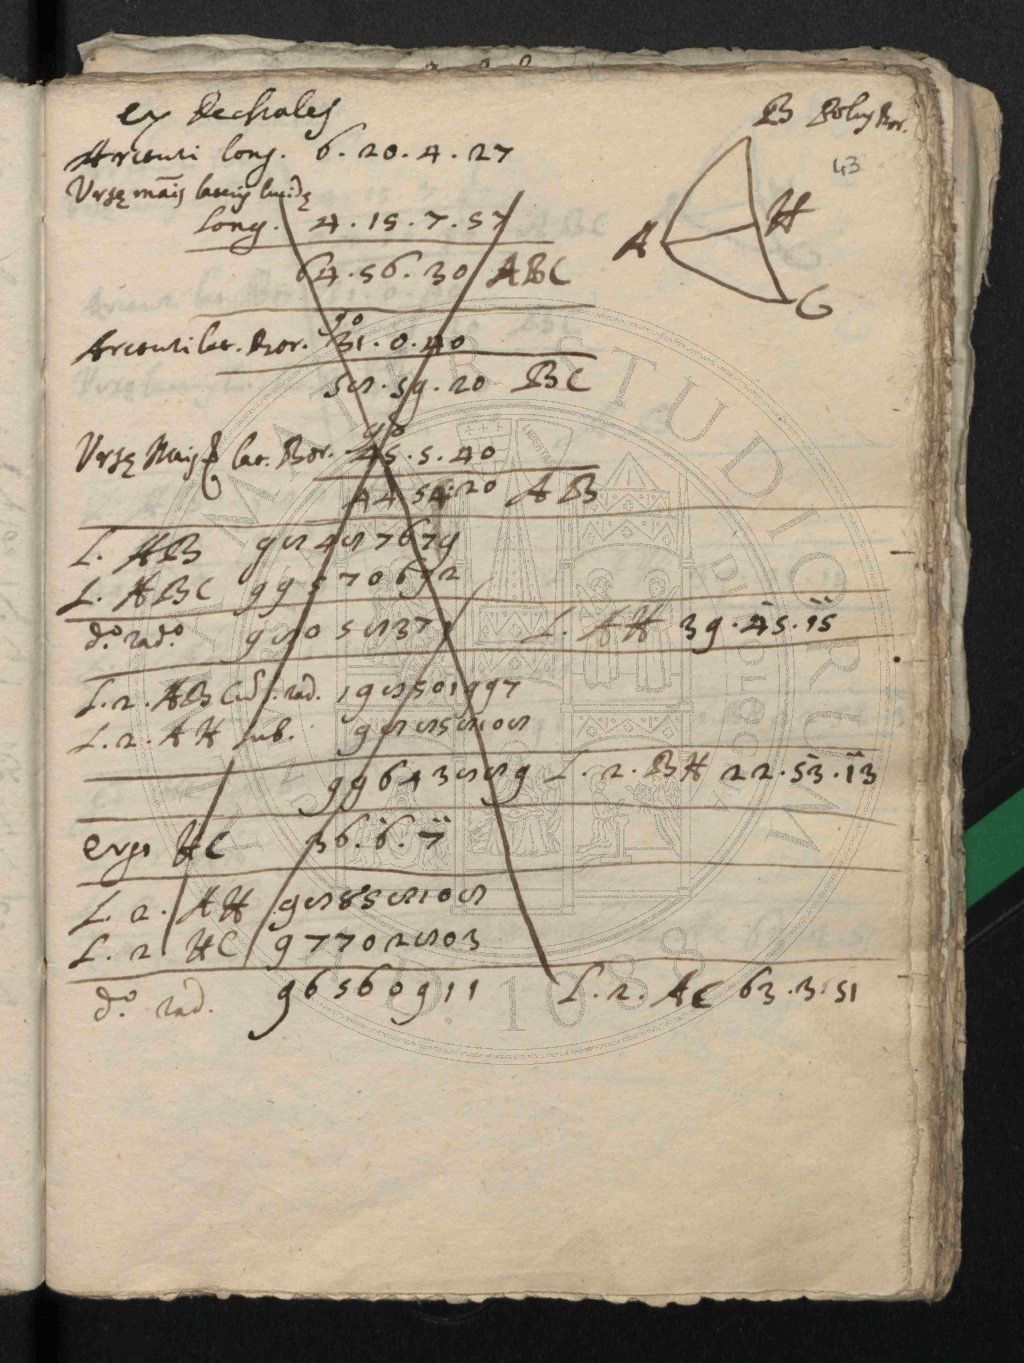 ex Dechales
B Polus Bor.
43
Arcturi long. 6. 20. 4. 27
Ursę māis lucidę
long. 4. 15. 7. 57
A
H
C
64. 56. 30 ABC
90
Arcturi lat. Bor. 31. 0. 40
58. 59. 20 BC
90
Ursę Maj lat. Bor. 45. 5. 40
44. 54. 20 AB
L. AB 98487679
L. ABC 99570692
do. rado. 9805837 L. AH 39. 45. 15
L. 2. ABC rad. 198501997
L. 2. AH sub.
9964388 9 L. 2. BH 22. 53. 13
ergo HC 36. 6. 7
L. 2. AH 98858108
L. 2 HC 97702803
do. rad. 96560911 L. 2. AC 63. 3. 51